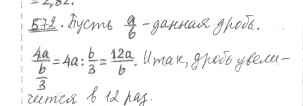 = 2,82.
572. Пусть a/b - данная дробь.
4a/(b/3) = 4a : b/3 = 12a/b. Итак, дробь увели-
чится в 12 раз.